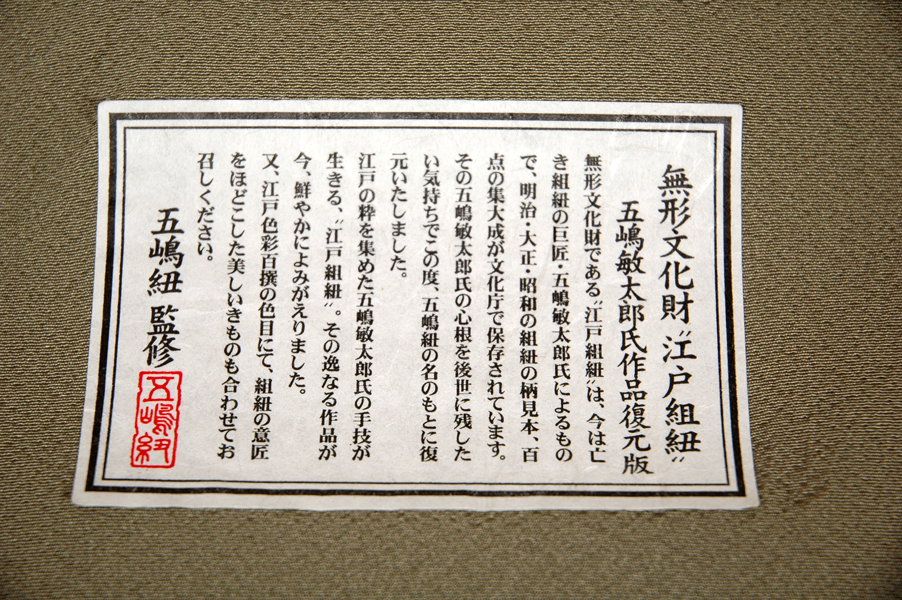 無形文化財〝江戸組紐〟
五嶋敏太郎氏作品復元版
無形文化財である〝江戸組紐〟は、今は亡
き組紐の巨匠・五嶋敏太郎氏によるもの
で、明治・大正・昭和の組紐の柄見本、百
点の集大成が文化庁で保存されています。
その五嶋敏太郎氏の心根を後世に残した
い気持ちでこの度、五嶋紐の名のもとに復
元いたしました。
江戸の粋を集めた五嶋敏太郎氏の手技が
生きる、〝江戸組紐〟。その逸なる作品が
今、鮮やかによみがえりました。
又、江戸色彩百撰の色目にて、組紐の意匠
をほどこした美しいきものも合わせてお
召しください。
五嶋紐 監修
五嶋紐